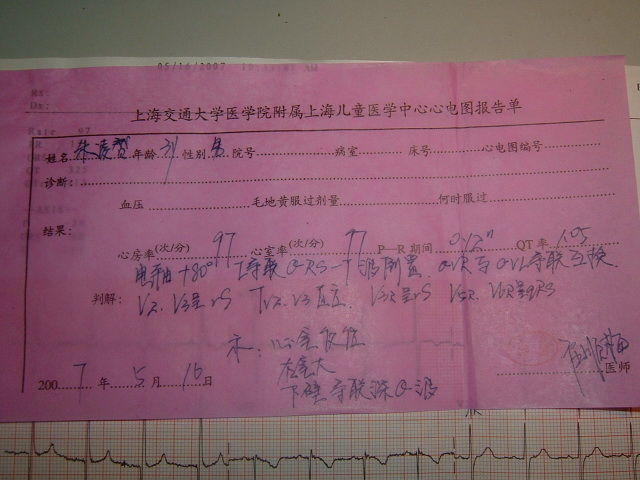 05/16/2007
上海交通大学医学院附属上海儿童医学中心心电图报告单
姓名 朱凌贺 年龄 3岁 性别 男 院号 病室 床号 心电图编号
诊断:
血压 毛地黄服过剂量 何时服过
结果:
心房率(次/分) 97 心室率(次/分) 97 P—R 期间 0.12" QT 率 1.05
电轴+80° I导联 QRS-T波倒置 aVR与aVL导联互换
判解: V2. V3呈rS TV2.V3直立 V3R呈rS V5R. V6R呈qRS
示:心室复位
右室大
2007年5月16日
下壁导联深Q波
医师